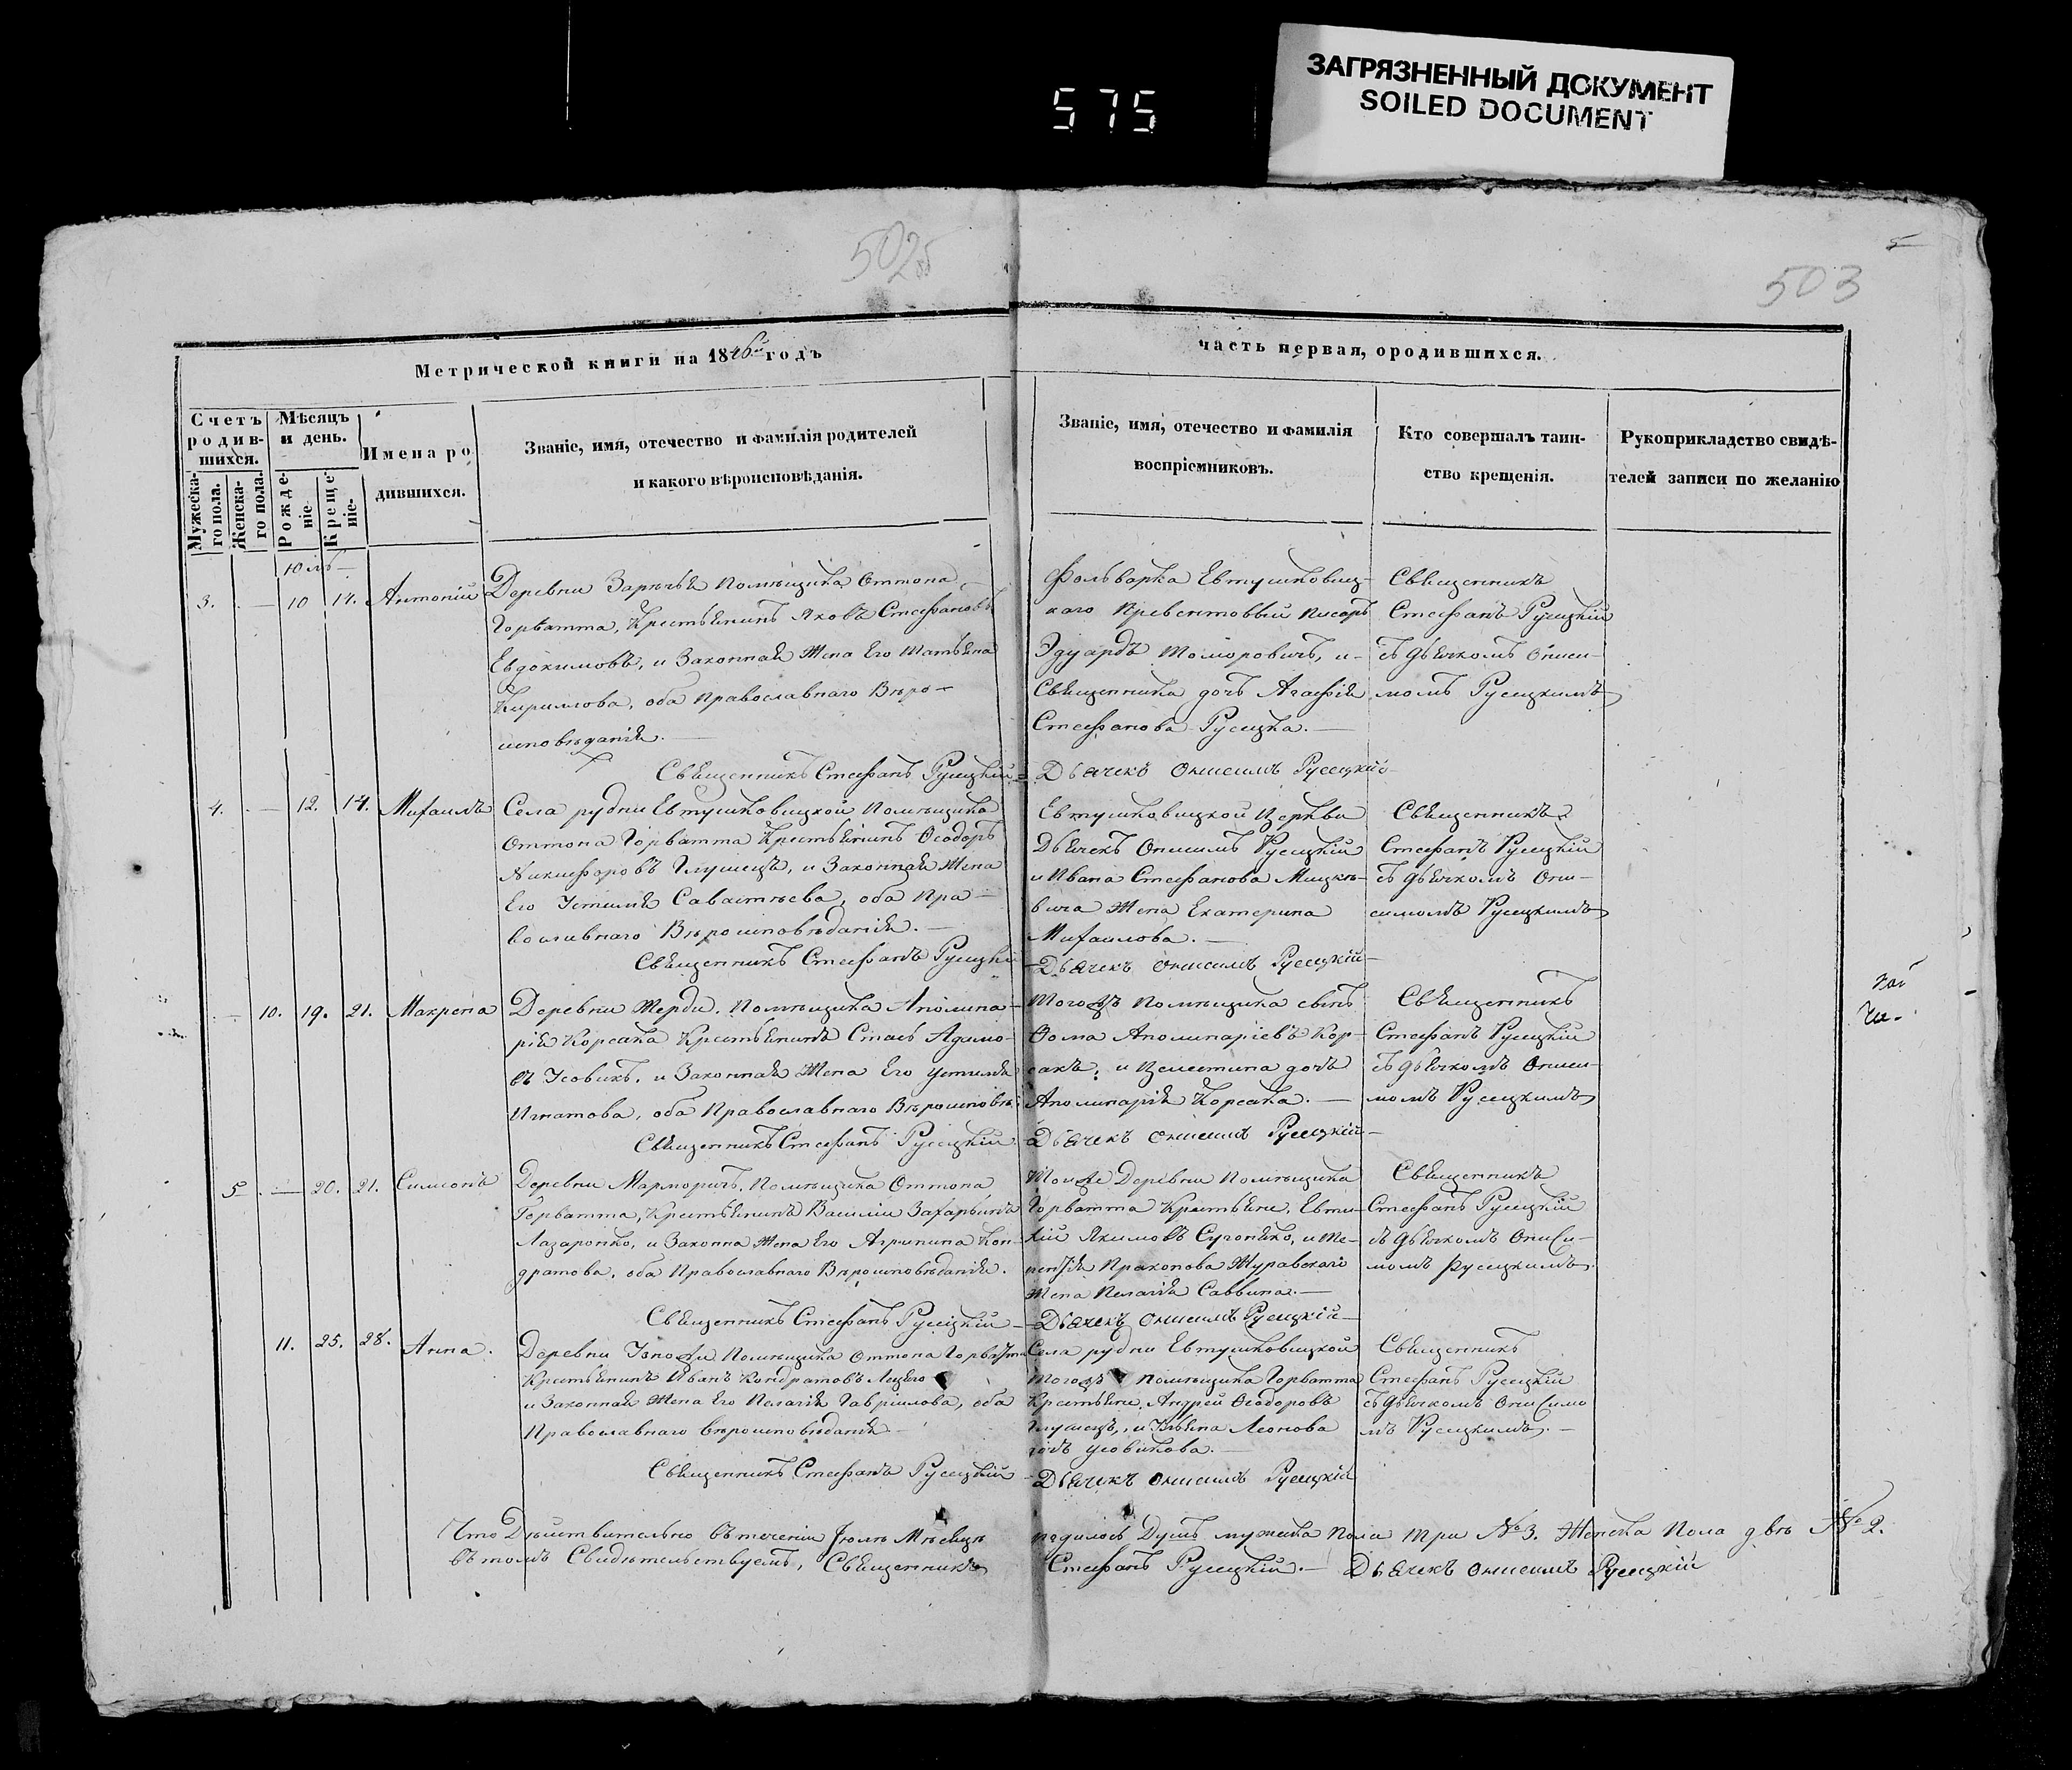 ЗАГРЯЗНЕННЫЙ ДОКУМЕНТ
SOILED DOCUMENT
575
502
503
5
Метрической книги на 1846й годъ
часть первая, ородившихся.
Счетъ родив-шихся.
Мужеска-го пола.
Женска-го пола.
Мѣсяцъ и день.
Рожде-ніе-
Креще-ніе-
Имена ро
дившихся.
Званіе, имя, отечество и фамилія родителей
и какого вѣроисповѣданія.
Званіе, имя, отечество и фамилія
воспріемниковъ.
Кто совершалъ таин-
ство крещенія.
Рукоприкладство свидѣ-
телей записи по желанію
Юль
3. — 10 14. Антоній
Деревни Зарѣчья Помѣщика Оттона
Горватта, Крестьянинъ Яковъ Стефановъ
Евдокимовъ, и Законная Жена Его Татьяна
Кириллова, оба Православнаго Вѣро-
исповѣданія. —
Священникъ Стефанъ Русецкій
Фольварка Евтушковиц-
каго Превентовый Писарь
Эдуардъ Томоровичь, и
Священника дочь Агафія
Стефанова Русецка. —
Дьячекъ Онисимъ Русецкій
Священникъ
Стефанъ Русецкій
съ дьячкомъ Ониси-
момъ Русецкимъ
4. — 12. 14. Михаилъ
Села рудни Евтушковицкой Помѣщика
Оттона Горватта Крестьянинъ Ѳеодоръ
Никифоровъ Глушецъ, и Законная Жена
Его Устинія Савастѣева, оба Пра-
вославнаго Вѣроисповѣданія. —
Священникъ Стефанъ Русецкій
Евтушковицкой Церкви
Дьячекъ Онисимъ Русецкій
и Ивана Стефанова Мицке-
вича Жена Екатерина
Михаилова. —
Дьячекъ Онисимъ Русецкій
Священникъ
Стефанъ Русецкій
съ дьячкомъ Они-
симомъ Русецкимъ
— 10. 19. 21. Макрена
Деревни Жерди. Помѣщика Аполина-
рія Корсака Крестьянинъ Стась Адамо-
въ Усовикъ, и Законная Жена Его Устинія
Игнатова, оба Православнаго Вѣроисповѣ:
Священникъ Стефанъ Русецкій
Тогожъ Помѣщика сынъ
Ѳома Аполинаріевъ Кор-
сакъ, и Целестина дочь
Аполинарія Корсака. —
Дьячекъ Онисимъ Русецкій
Священникъ
Стефанъ Русецкій
съ дьячкомъ Ониси-
момъ Русецкимъ
5 — 20. 21. Симеонъ
Деревни Марморичъ, Помѣщика Оттона
Горватта, Крестьянинъ Василій Захарьинъ
Лазаронко, и Законна Жена Его Агрипина Кон-
дратова, оба Православнаго Вѣроисповѣданія.
Священникъ Стефанъ Русецкій
Тойже Деревни Помѣщика
Горватта Крестьяне, Евти-
хій Якимовъ Сугонѣко, и Те-
рентія Пракопова Журавскаго
Жена Пелагія Саввина. —
Дьячекъ Онисимъ Русецкій
Священникъ
Стефанъ Русецкій
съ дьячкомъ Ониси-
момъ Русецкимъ.
11. 25. 28. Анна.
Деревни Узножи Помѣщика Оттона Горватта
Крестьянинъ Иванъ Кондратовъ
и Законная Жена Его Пелагія Гавріилова, оба
Православнаго вѣроисповѣданія
Священникъ Стефанъ Русецкій
Села рудни Евтушковицкой
тогожъ помѣщика Горватта
Крестьяне, Андрей Ѳеодоровъ
Глушецъ, и Ульяна Леонова
дочь Усовикова. —
Дьячекъ Онисимъ Русецкій
Священникъ
Стефанъ Русецкій
съ дьячкомъ Онисимо
мъ Русецкимъ. —
Что Дѣйствительно въ теченіи Іюлѣ Мѣсяцѣ родилось Душъ мужеска Пола три №3. Женска Пола двѣ №2.
въ томъ Свидѣтельствуемъ, Священникъ Стефанъ Русецкій. — Дьячекъ Онисимъ Русецкій